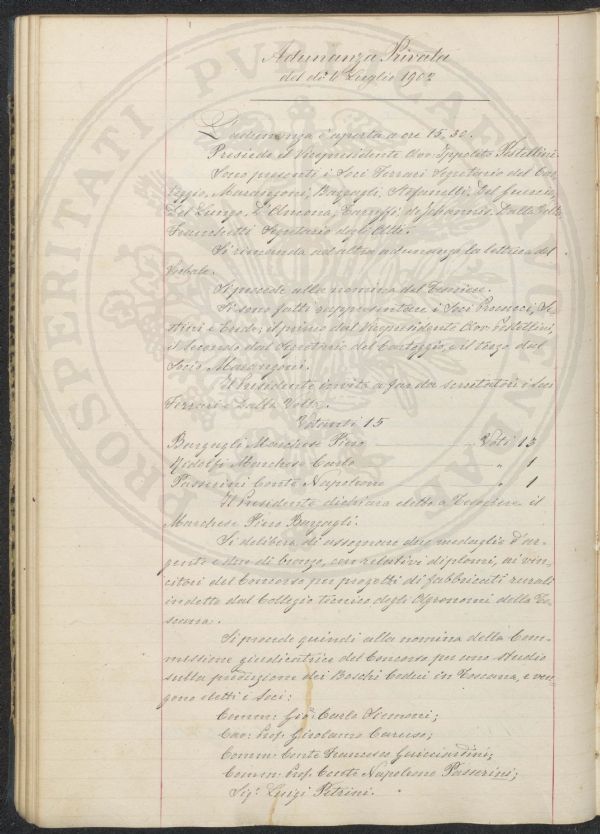 Adunanza Privata
del dì 6 Luglio 1902
L'adunanza è aperta a ore 15,30.
Presiede il Vicepresidente Avv. Ippolito Pestellini.
Sono presenti i Soci Ferrari Segretario del Car-
teggio, Marangoni, Bargagli, Stefanelli, Del
Del Lungo, D'Ancona, Caruffi, de Johannis, Dalla Volta,
Franchetti Segretario degli Atti.
Si rimanda ad altra adunanza la lettura del
Verbale.
Si procede alla nomina del Tesoriere.
Si sono fatti rappresentare i Soci Se-
stini e il primo dal Vicepresidente Avv. Pestellini,
il secondo dal Segretario del Carteggio, e il terzo dal
Socio Marangoni.
Il Presidente invita a far da scrutatori i Soci
Ferrari e Dalla Volta.
Votanti 15
Bargagli Marchese Piero Voti 13
Ridolfi Marchese Carlo " 1
Passerini Conte Napoleone " 1
Il Presidente dichiara eletto a Tesoriere il
Marchese Piero Bargagli.
Si delibera di assegnare due medaglie d'ar-
gento e due di bronzo, con relativi diplomi, ai vin-
citori del Concorso per progetti di fabbricati rurali
indetto dal Collegio tecnico degli Agronomi della To-
scana.
Si procede quindi alla nomina della Com-
missione giudicatrice del Concorso per uno studio
sulla produzione dei Boschi Cedui in Toscana, e ven-
gono eletti i Soci:
Comm: Gio: Carlo Siemoni;
Cav: Prof. Girolamo Caruso;
Comm: Conte Francesco Guicciardini;
Comm: Prof. Conte Napoleone Passerini;
Sigr. Luigi Petrini.
PROSPERITATI PVBLICAE AVGENDAE